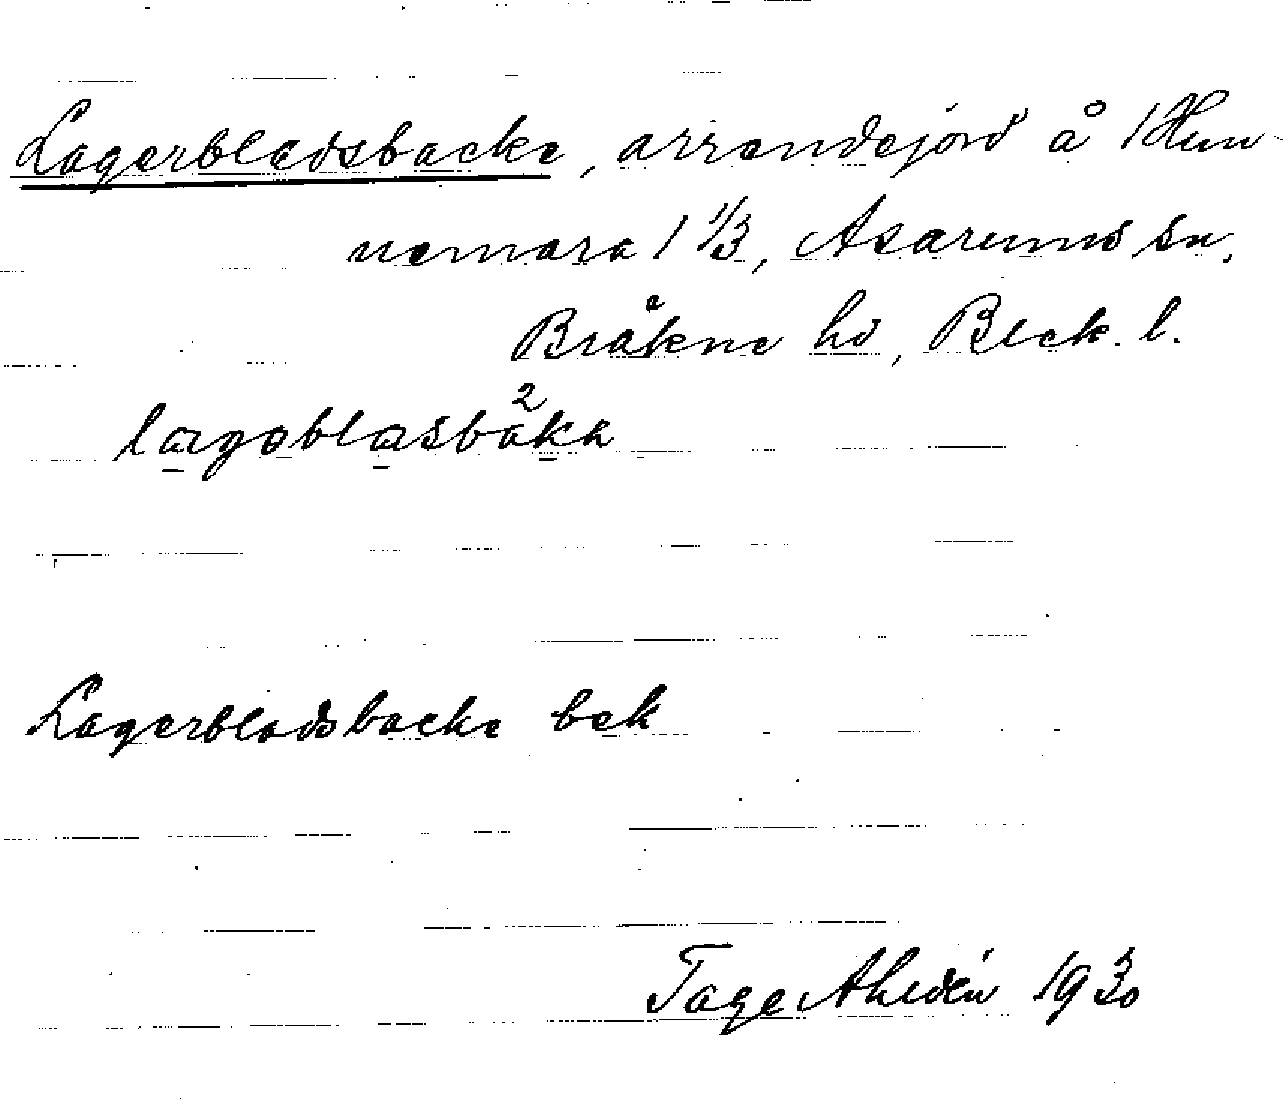 Lagerbladsbacke, arrendejord å Hun-
nemara 1 1/3, Asarums sn,
Bräkne hd, Blek. l.
Lagerbladsbacke bek
Tage Ahldén 1930